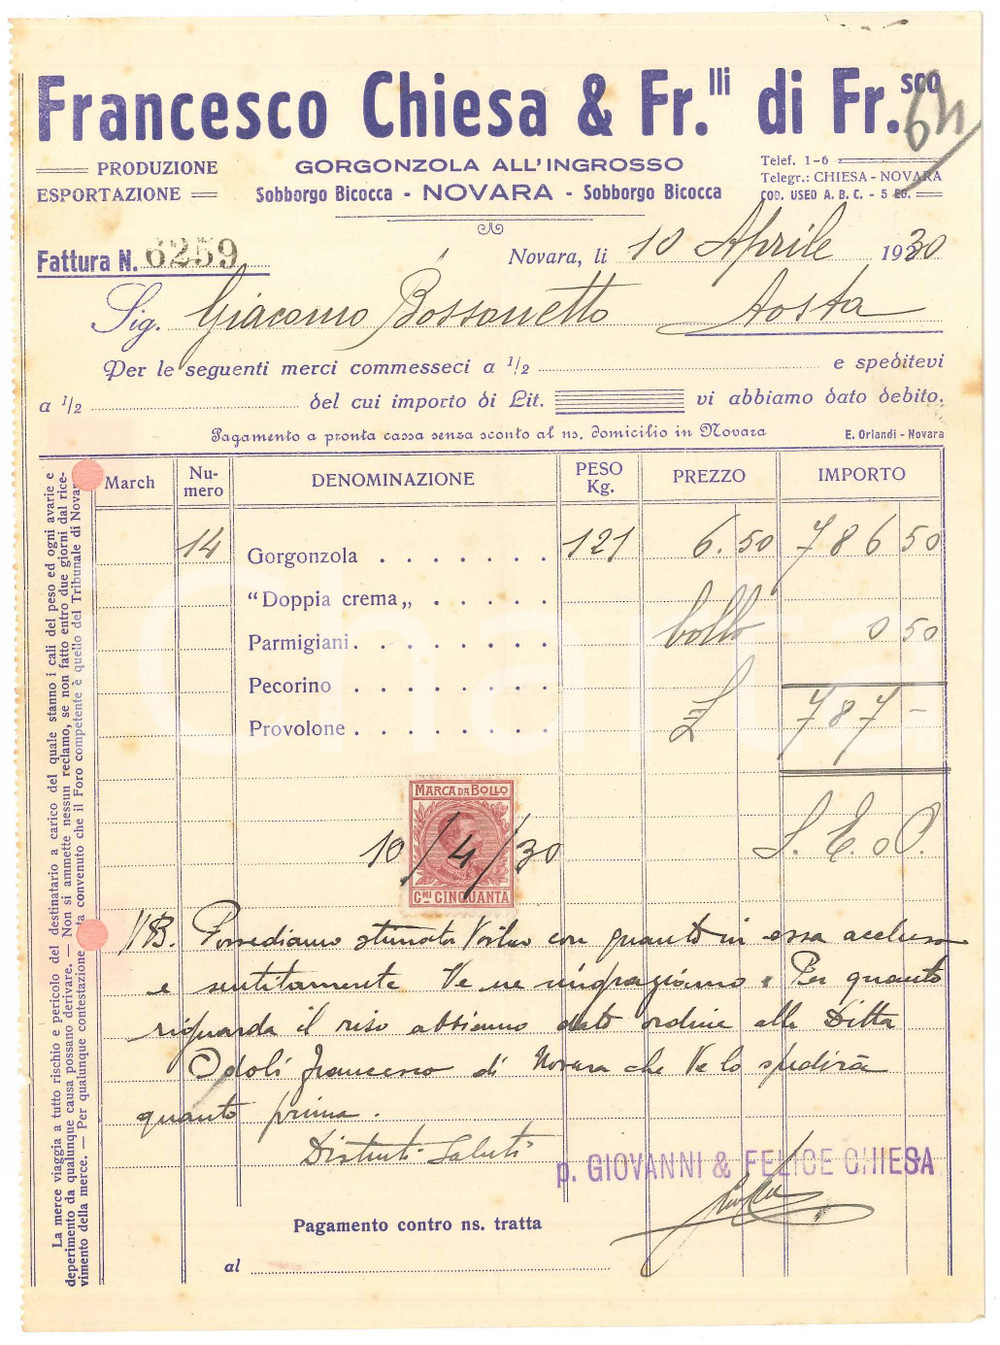 Francesco Chiesa & Fr.lli di Fr.sco
64
PRODUZIONE
ESPORTAZIONE
GORGONZOLA ALL'INGROSSO
Sobborgo Bicocca - NOVARA - Sobborgo Bicocca
Telef. 1-6
Telegr.: CHIESA - NOVARA
COD. USED A. B. C. - 5 ED.
Fattura N. 6259
Novara, li 10 Aprile 1930
Sig. Giacomo Bossonetto Aosta
Per le seguenti merci commesseci a 1/2 e speditevi
a 1/2 del cui importo di Lit. vi abbiamo dato debito.
Pagamento a pronta cassa senza sconto al ns. domicilio in Novara
E. Orlandi - Novara
March Numero DENOMINAZIONE PESO Kg. PREZZO IMPORTO
14 Gorgonzola 121 6.50 786 50
"Doppia crema„
Parmigiani bollo 0 50
Pecorino
Provolone £ 787 -
MARCA DA BOLLO
10/4/30
CMI CINQUANTA
S. E. o O.
NB. Possediamo stimata Vostra con quanto in essa accluso
e sentitamente Ve ne ringraziamo. Per quanto
riguarda il riso abbiamo dato ordine alla Ditta
Odoli Francesco di Novara che Ve lo spedirà
quanto prima.
Distinti Saluti
p. GIOVANNI & FELICE CHIESA
Pagamento contro ns. tratta
al
La merce viaggia a tutto rischio e pericolo del destinatario a carico del quale stanno i cali del peso ed ogni avarie e
deperimento da qualunque causa possano derivare. — Non si ammette nessun reclamo, se non fatto entro due giorni dal rice-
vimento della merce. — Per qualunque contestazione da convenuto che il Foro competente è quello del Tribunale di Novar
Charta